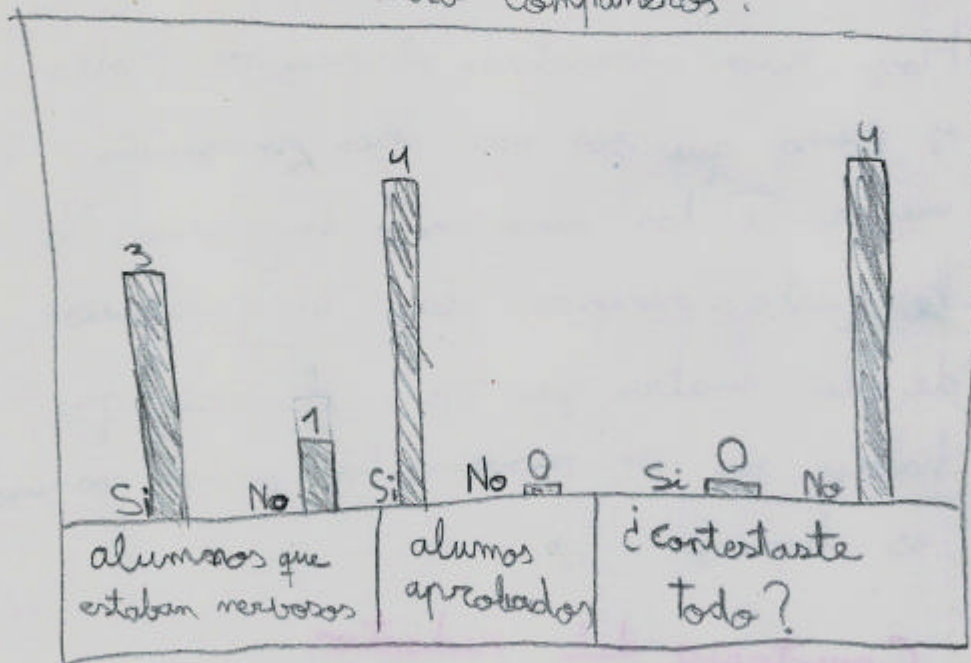 compañeros.
3
1
4
0
0
4
Si No Si No Si No
alumnos que
estaban nerbosos
alumos
aprobados
¿contestaste
todo?